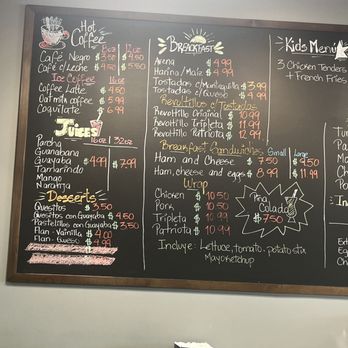 Hot
Coffee
8oz 12oz
Café Negro $3.50 $4.50
Café c/Leche $4.50 $5.50
Ice Coffee 16oz
Coffee Latte $4.50
Oatmilk coffee $5.99
Coquilatte $6.99
Juices
16oz 32oz
Parcha
Guanabana
Guayaba $4.99 $7.99
Tamarindo
Mango
Naranja
Desserts
Quesitos $3.50
Quesitos con Guayaba $4.50
Pastelillos con Guayaba $3.50
Flan - Vainilla $4.00
Flan - Queso $4.99
Breakfast
Avena $4.99
Harina/Maiz $4.99
Tostadas c/Mantequilla $3.99
Tostadas c/Queso $4.99
Revoltillos c/Tostadas
Revoltillo Original $10.99
Revoltillo Tripleta $11.99
Revoltillo Patriota $12.99
Breakfast Sandwiches Small Large
Ham and Cheese $7.50 $9.50
Ham, cheese and eggs $8.99 $11.99
Wrap
Chicken $10.50
Pork $10.50
Tripleta $10.99
Patriota $11.99
Incluye: Lettuce, tomato, potato stix
Mayoketchup
Piña
Colada
$7.50
Kids Menu
3 Chicken Tenders
+ French Fries